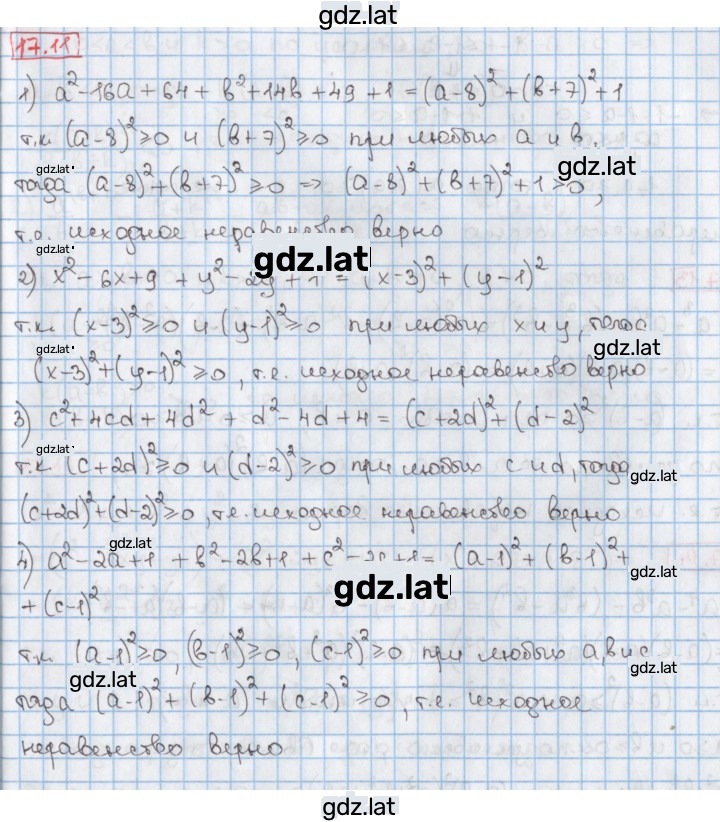 gdz.lat
17.11
1) a² - 16a + 64 + b² + 14b + 49 + 1 = (a-8)² + (b+7)² + 1
т.к. (a-8)² ≥ 0 и (b+7)² ≥ 0 при любых a и b.
gdz.lat
gdz.lat
тогда (a-8)² + (b+7)² ≥ 0 => (a-8)² + (b+7)² + 1 > 0,
т.е. исходное неравенство верно
gdz.lat
gdz.lat
2) x² - 6x + 9 + y² - 2y + 1 = (x-3)² + (y-1)²
т.к. (x-3)² ≥ 0 и (y-1)² ≥ 0 при любых x и y, тогда
gdz.lat
gdz.lat
(x-3)² + (y-1)² ≥ 0, т.е. исходное неравенство верно
3) c² + 4cd + 4d² + d² - 4d + 4 = (c+2d)² + (d-2)²
gdz.lat
т.к. (c+2d)² ≥ 0 и (d-2)² ≥ 0 при любых c и d, тогда
gdz.lat
(c+2d)² + (d-2)² ≥ 0, т.е. исходное неравенство верно
gdz.lat
4) a² - 2a + 1 + b² - 2b + 1 + c² - 2c + 1 = (a-1)² + (b-1)² +
gdz.lat
gdz.lat
+ (c-1)²
т.к. (a-1)² ≥ 0, (b-1)² ≥ 0, (c-1)² ≥ 0 при любых a, b и c
gdz.lat
gdz.lat
тогда (a-1)² + (b-1)² + (c-1)² ≥ 0, т.е. исходное
неравенство верно
gdz.lat